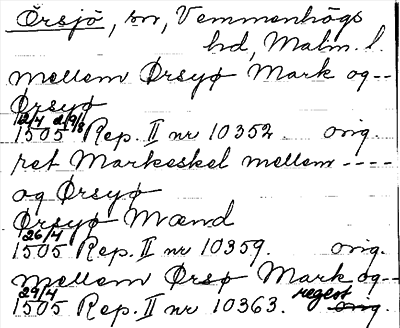 Örsjö, sn, Vemmenhögs
hd, Malm. l.
mellem Ørsyø Mark og --
Ørsyø
12/4 2/9/8
1505 Rep. II nr 10352. orig.
ret Markeskel mellem ----
og Ørsyø
Ørsyø Mænd
26/4
1505 Rep. II nr 10359. orig.
mellem Ørsø Mark og --
29/4 regest
1505 Rep. II nr 10363. orig.